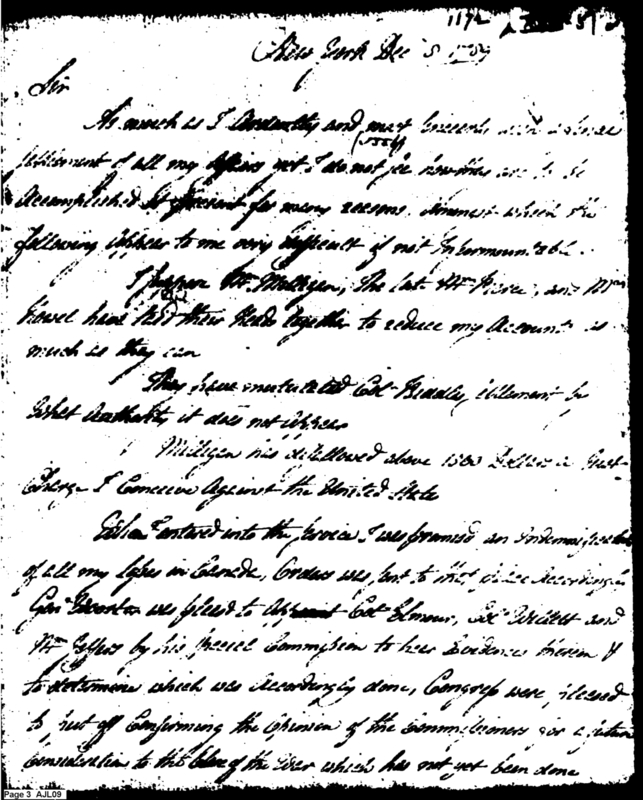 1172
New York Dec 5 1789
Sir
As much as I Ardently and most sincerely wish a
(Jossly
settlement of all my Affairs yet I do not see how this are to be
Accomplished at present for many reasons. Amonest which the
following Appear to me very difficult if not Insurmountable.
I suppose Mr Milligan, The late Mr Pierce, and Mr
Howel have had their Heads together to reduce my Accounts as
much as they can
They have mutulated Col. settlement by
what Authority it does not Appear
Milligan has disallowed above 1500 Dollars a Just
Charge I Conceive Against the United State
When I entered into the service I was promised an Indemnification
of all my loses in Canada, Orders was sent to that place Accordingly
Genl Wooster was pleased to Appoint Col Elmour, Col and
Mr by his special Commission to hear Evidences therein &
to determine which was Accordingly done, Congress were pleased
to put off Confirming the Opinion of the Commissioners for a future
Consideration to the Close of the War which has not yet been done
Page 3 AJL09